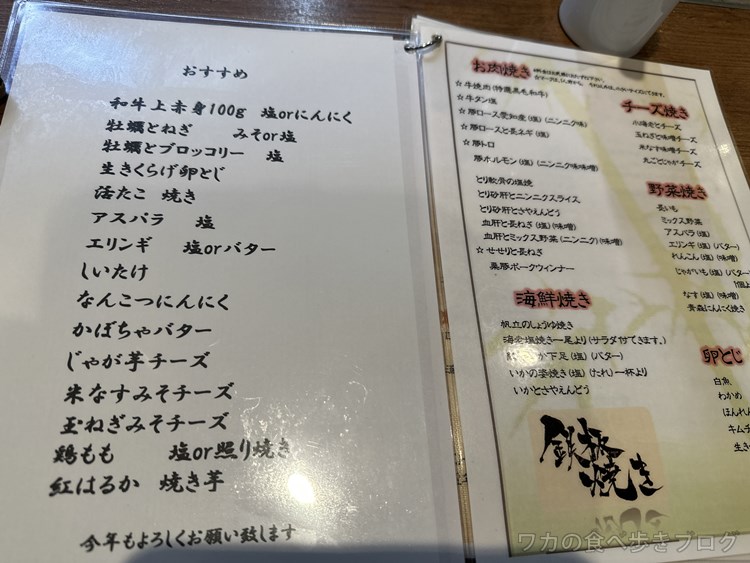 おすすめ
和牛上赤身100g 塩orにんにく
牡蠣とねぎ みそor塩
牡蠣とブロッコリー 塩
生きくらげ卵とじ
活たこ 焼き
アスパラ 塩
エリンギ 塩orバター
しいたけ
なんこつにんにく
かぼちゃバター
じゃが芋チーズ
米なすみそチーズ
玉ねぎみそチーズ
鶏もも 塩or照り焼き
紅はるか 焼き芋
今年もよろしくお願い致します
お肉焼き
☆牛焼肉(特選黒毛和牛)
☆牛タン塩
☆豚ロース愛知産(塩)(ニンニク味)
☆豚ロースと長ネギ(塩)
☆豚トロ
豚ホルモン(塩)(ニンニク味味噌)
とり軟骨の塩焼
とり砂肝とニンニクスライス
とり砂肝とさやえんどう
血肝と長ねぎ(塩)(味噌)
血肝とミックス野菜(ニンニク)(味噌)
☆せせりと長ねぎ
黒豚ポークウィンナー
海鮮焼き
帆立のしょうゆ焼き
海老塩焼き一尾より(サラダ付てきます。)
下足(塩)(バター)
いかの姿焼き(塩)(たれ)一杯より
いかとさやえんどう
鉄板焼き
チーズ焼き
小海老とチーズ
玉ねぎと味噌チーズ
米なす味噌チーズ
丸ごとじゃがチーズ
野菜焼き
長いも
ミックス野菜
アスパラ(塩)
エリンギ(塩)(バター)
れんこん(塩)(味噌)
じゃがいも(塩)(バター)
1個よ
なす(塩)(味噌)
青森にんにく焼き
卵とじ
白魚
わかめ
ほんれん
キムチ
生き
ワカの食べ歩きブログ